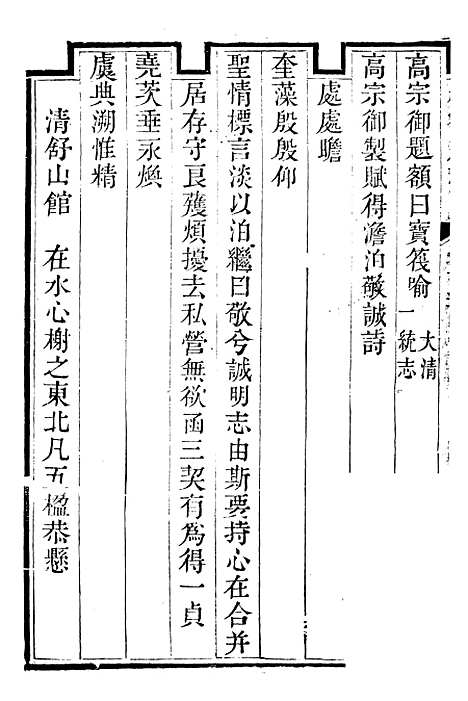 高宗御題額曰寶筏喻大清一統志
高宗御製賦得澹泊敬誠詩
處處瞻
奎藻殷殷仰
聖情標言淡以泊繼曰敬兮誠明志由斯要持心在合并
居存守良蠖煩擾去私營無欲函三契有為得一貞
堯芡垂永煥
虞典溯惟精
清舒山館 在水心榭之東北凡五楹恭懸